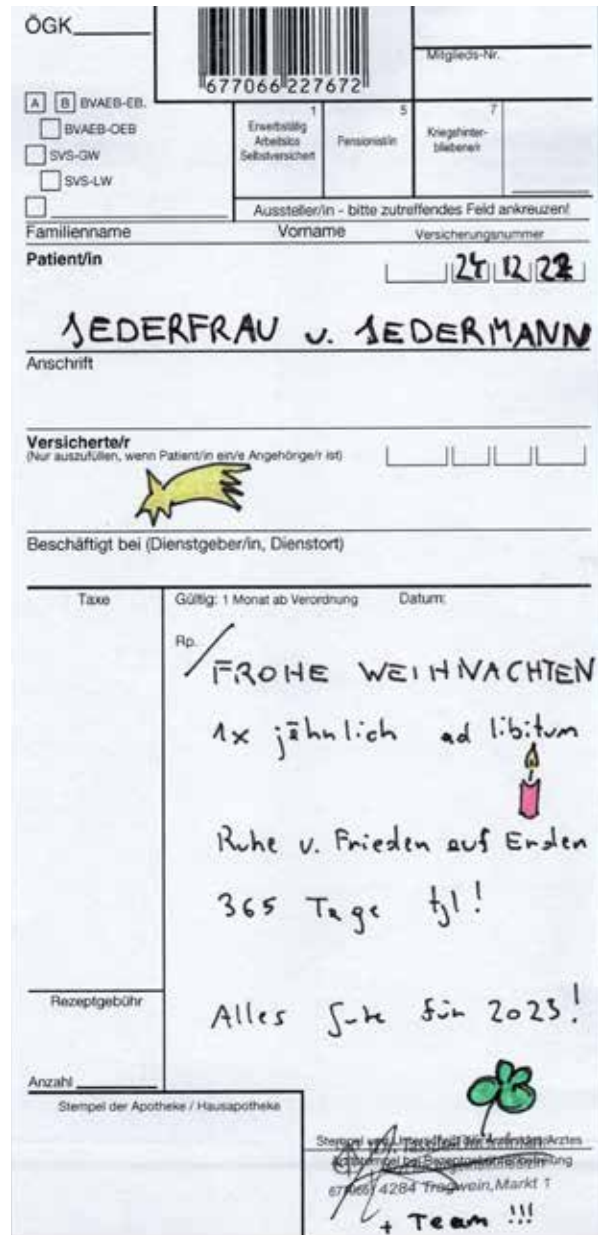 ÖGK
677066 227672
Mitglieds-Nr.
A B BVAEB-EB.
BVAEB-OEB
SVS-GW
SVS-LW
1
Erwerbstätig
Arbeitslos
Selbstversichert
5
Pensionist/in
7
Kriegshinter-
bliebene/r
Aussteller/in - bitte zutreffendes Feld ankreuzen!
Familienname Vorname Versicherungsnummer
Patient/in
24 12 22
JEDERFRAU v. JEDERMANN
Anschrift
Versicherte/r
(Nur auszufüllen, wenn Patient/in ein/e Angehörige/r ist)
Beschäftigt bei (Dienstgeber/in, Dienstort)
Taxe Gültig: 1 Monat ab Verordnung Datum:
Rp.
FROHE WEIHNACHTEN
1x jährlich ad libitum
Ruhe v. Frieden auf Erden
365 Tage tgl!
Alles Gute für 2023!
Rezeptgebühr
Anzahl
Stempel der Apotheke / Hausapotheke
4284 Tragwein, Markt 1
+ Team !!!